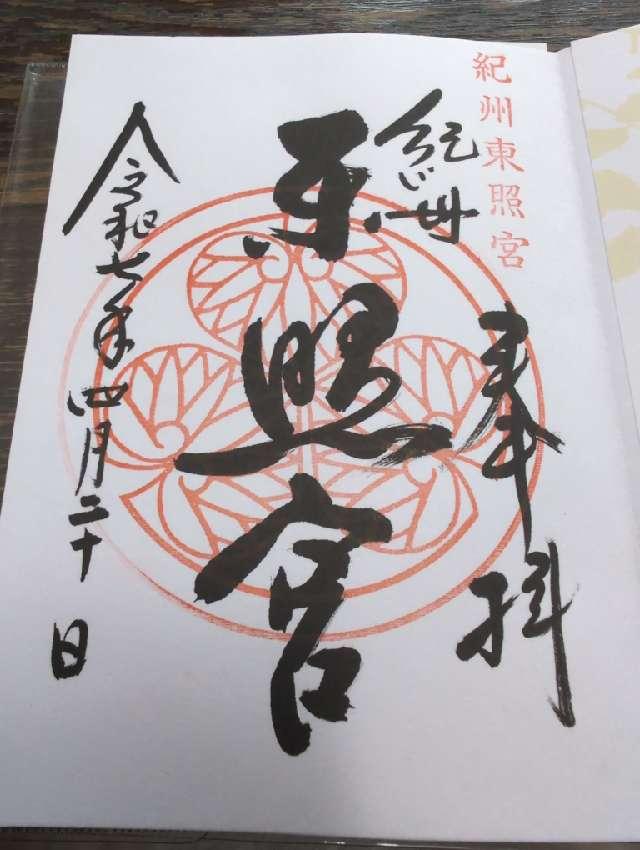 紀州東照宮
奉拝
紀州
東照宮
令和七年四月二十日